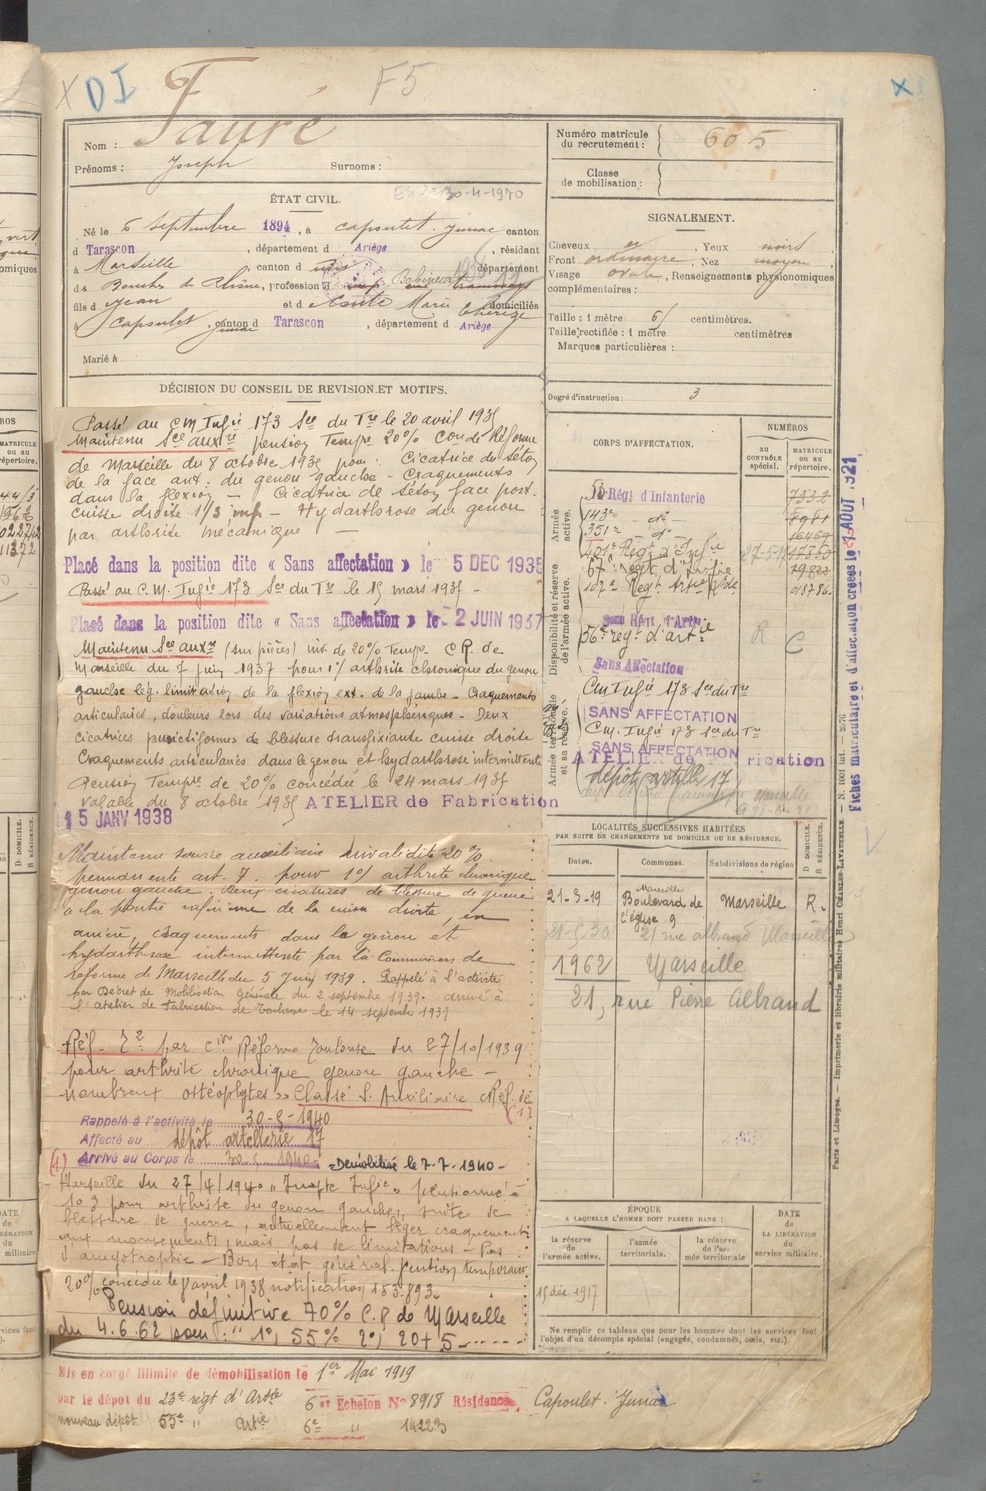 X DI F5 X
Nom : Fauré
Prénoms : Joseph Surnoms :
ÉTAT CIVIL.
30-4-1970
Né le 6 septembre 1894, à Capoulet-Junac canton
d Tarascon, département d Ariège, résidant
à Marseille, canton d département
des Bouches du Rhône, profession d Bobineur
fils d Jean et d Marie Thérèze domiciliés
à Capoulet Junac, canton d Tarascon, département d Ariège
Marié à
DÉCISION DU CONSEIL DE REVISION ET MOTIFS.
Passé au C M Infie 173 Son du Tre le 20 avril 1935
Maintenu Sce auxre pension Tempre 20% Con de Réforme
de Marseille du 8 octobre 1935 pour : Cicatrice de Séton
de la face ant. du genou gauche - Craquements
dans la flexion - Cicatrice de Séton face post.
cuisse droite 1/3 inf - Hydarthrose du genou
par arthrite mécanique
Placé dans la position dite « Sans affectation » le 5 DEC 1935
Passé au C. M. Infie 173 Son du Tre le 15 mars 1937 -
Placé dans la position dite « Sans affectation » le 2 JUIN 1937
Maintenu Sce auxre (sur pièces) inv. de 20% Tempre C R. de
Marseille du 7 juin 1937 pour 1°/ arthrite chronique du genou
gauche lég. limitation de la flexion ext. de la jambe - Craquements
articulaires, douleurs lors des variations atmosphériques - Deux
cicatrices punctiformes de blessure transfixiante cuisse droite
Craquements articulaires dans le genou et hydarthrose intermittente
Pension Tempre de 20% concédée le 24 mars 1935
valable du 8 octobre 1935 ATELIER de Fabrication
15 JANV 1938
Maintenu service auxiliaire invalidité 20%
permanente art. 7. pour 1°/ arthrite chronique
genou gauche. Deux cicatrices de blessure de guerre
à la partie inférieure de la cuisse droite, en
arrière, craquements dans le genou et
hydarthrose intermittente par la Commission de
réforme de Marseille du 5 Juin 1939. Rappelé à l'activité
par Décret de Mobilisation Générale du 2 septembre 1939. arrivé à
l'atelier de Fabrication de Toulouse le 14 septembre 1939
Réf. par Cion Réforme Toulouse du 27/10/1939
pour arthrite chronique genou gauche -
nombreux ostéophytes » Classé S. Auxiliaire Réf. de
(1)
Rappelé à l'activité le 30-5-1940
Affecté au dépôt artillerie 17
(1) Arrivé au Corps le 30.5.1940 - Démobilisé le 7-7-1940 -
Marseille du 27/4/1940 « Inapte Infie » pensionné à
pour arthrite du genou gauche, suite de
blessure de guerre, actuellement léger craquement
aux mouvements, mais pas de limitations - Pas
d'amyotrophie - Bon état général. Pension temporaire
20% concédée le 1 avril 1938 notification 153.893.
Pension définitive 70% C.R de Marseille
du 4.6.62 pour : " 1°/ 55% 2°/ 20+5 -----
Mis en congé illimité de démobilisation le 1er Mai 1919
par le dépôt du 23e régt d'Artie 6e Echelon No 8918 Résidence, Capoulet-Junac
nouveau dépôt 55e " Artie 6e " 14223
Numéro matricule du recrutement : 605
Classe de mobilisation :
SIGNALEMENT.
Cheveux, Yeux noirs
Front ordinaire, Nez moyen
Visage ovale, Renseignements physionomiques
complémentaires :
Taille : 1 mètre 61 centimètres.
Taille rectifiée : 1 mètre centimètres
Marques particulières :
Degré d'instruction : 3
CORPS D'AFFECTATION.
NUMÉROS
au CONTRÔLE spécial.
MATRICULE OU AU répertoire.
Armée active.
Disponibilité et réserve de l'armée active.
Armée territoriale et sa réserve.
Régt d'Infanterie 7332
143e - do - 8981
351e - do 16469
401e Régt d'Infie 27-5-17 17860
67e Régt d'Artie 19822
107e Régt Artie
56e régt d'artie R C
Sans Affectation
Cm Infie 173 Son du Tre
SANS AFFECTATION
C m. Infie 173 Son du Tre
SANS AFFECTATION
ATELIER de rication
dépôt artillie 17
LOCALITÉS SUCCESSIVES HABITÉES
PAR SUITE DE CHANGEMENTS DE DOMICILE OU DE RÉSIDENCE.
Dates. Communes. Subdivisions de région D. DOMICILE. R. RÉSIDENCE.
21-3-19 Marseille Boulevard de l'église 9 Marseille R.
21-5-30 21 rue albrand Marseille
1962 Marseille
21, rue Pierre Albrand
ÉPOQUE
A LAQUELLE L'HOMME DOIT PASSER DANS :
la réserve de l'armée active. l'armée territoriale. la réserve de l'armée territoriale
DATE de LA LIBÉRATION du service militaire.
15 déc. 1917
Ne remplir ce tableau que pour les hommes dont les services font
l'objet d'un décompte spécial (engagés, condamnés, omis, etc.).
Fiches matriculaire et d'affectation créées le 1 AOUT 1921
Paris et Limoges. — Imprimerie et librairie militaires Henri CHARLES-LAVAUZELLE.